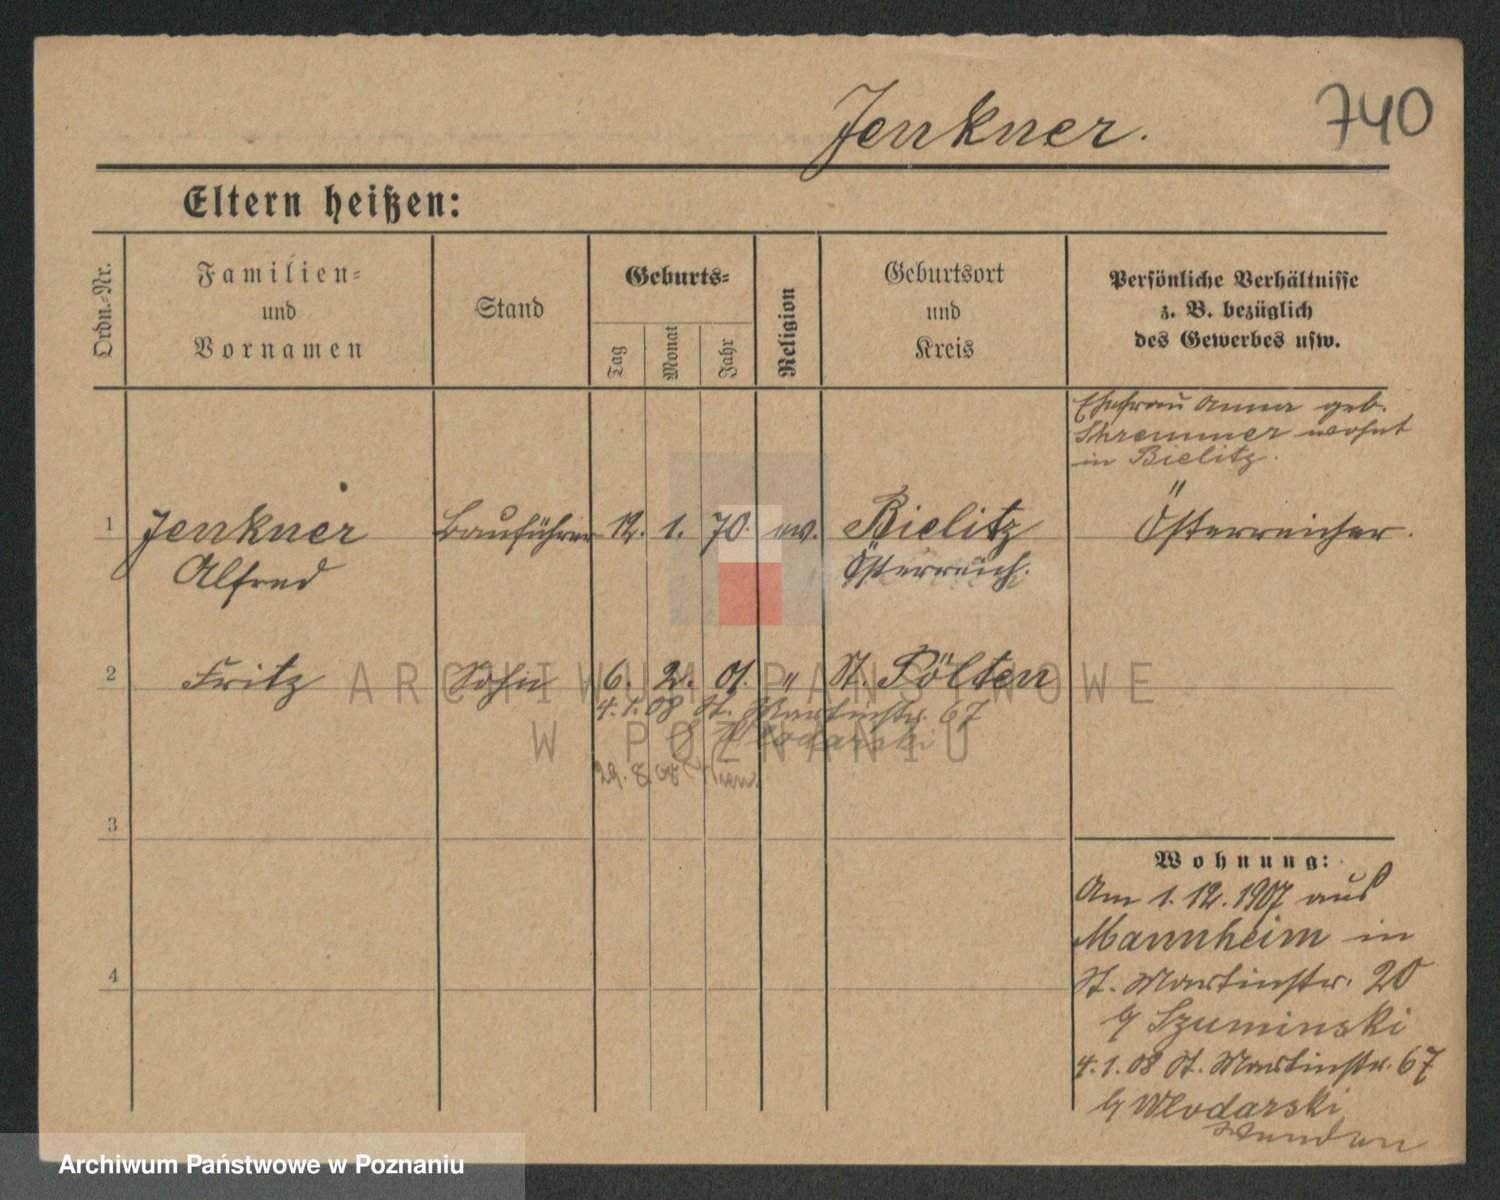 Jenkner.
740
Eltern heißen:
Ordn.-Nr.
Familien-
und
Vornamen
Stand
Geburts-
Tag
Monat
Jahr
Religion
Geburtsort
und
Kreis
Persönliche Verhältnisse
z. B. bezüglich
des Gewerbes usw.
Ehefrau Anna geb.
wohnt
in Bielitz.
1 Jenkner Bauführer 12. 1. 70. ev. Bielitz Österreicher.
Alfred Österreich.
2 Fritz Sohn 6. 2. 01. " St. Pölten
4.1.08 St. Martinstr. 67
b Wlodarski
29.8.08 Wien.
3
4
Wohnung:
Am 1. 12. 1907 aus
Mannheim in
St. Martinstr. 20
b/ Szuminski
4.1.08 St. Martinstr. 67
b/ Wlodarski
ARCHIWUM PAŃSTWOWE
W POZNANIU
Archiwum Państwowe w Poznaniu